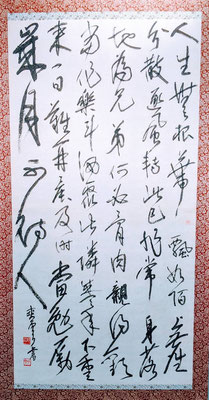 人生無根蒂飄如陌上塵
分散逐風轉此已非常身落
地為兄弟何必骨肉親得歡
當作樂斗酒聚比隣盛年不重
來一日難再晨及時當勉勵
歲月不待人
書